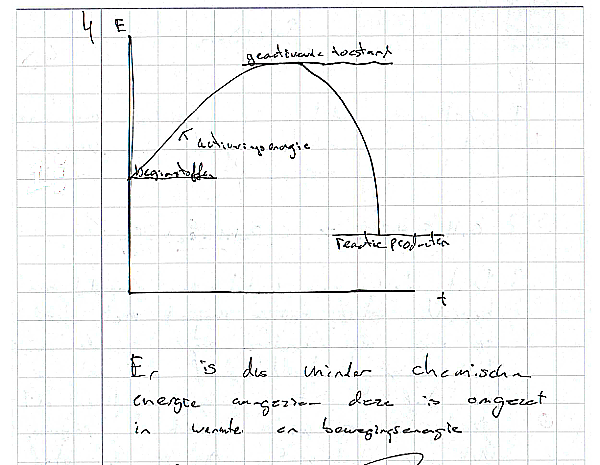 4 E
geactiveerde toestand
activeringsenergie
beginstoffen
reactie producten
t
Er is dus minder chemische
energie aangezien deze is omgezet
in warmte en bewegingsenergie